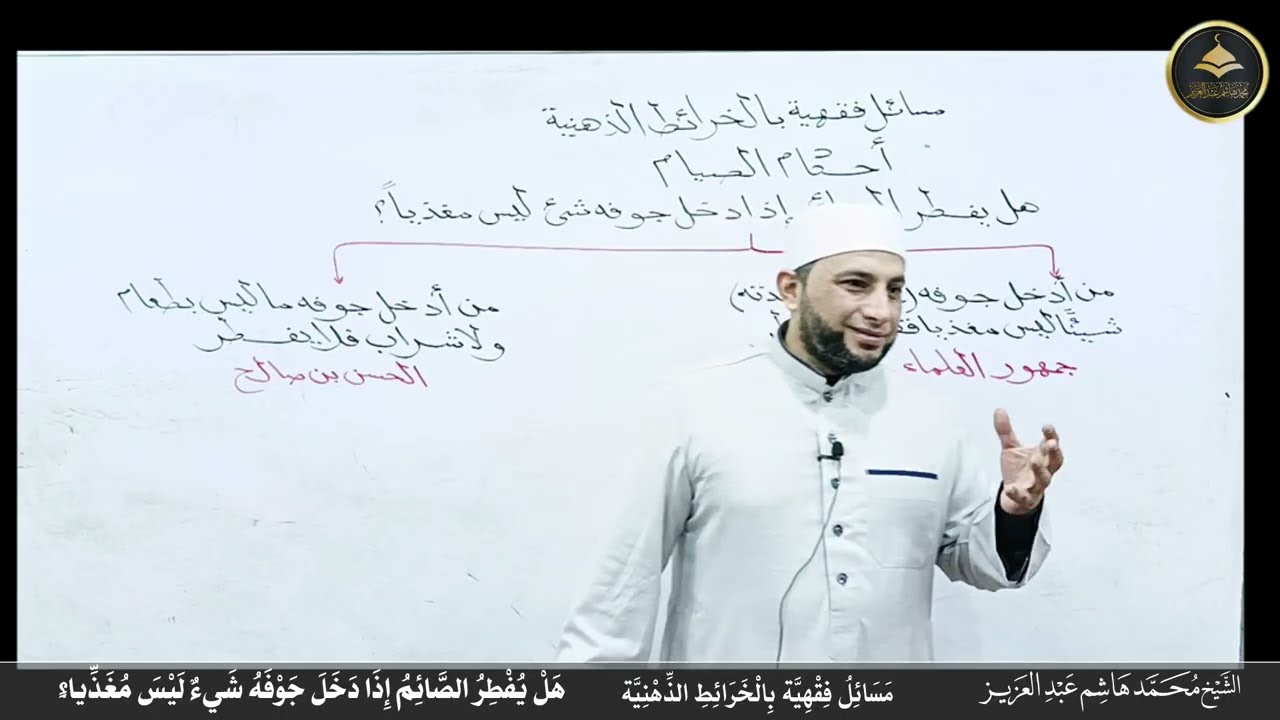 محمد هاشم عبد العزيز
مسائل فقهية بالخرائط الذهنية
أحكام الصيام
هل يفطر إذا دخل جوفه شئ ليس مغذياً؟
من أدخل جوفه
شيئًا ليس مغذيا
جمهور العلماء
من أدخل جوفه ما ليس بطعام
ولا شراب فلا يفطر
الحسن بن صالح
الشَّيْخ مُحَمَّد هَاشِم عَبْدِ العَزِيز
مَسَائِلُ فِقْهِيَّة بِالْخَرَائِطِ الذِّهْنِيَّة
هَلْ يُفْطِرُ الصَّائِمُ إِذَا دَخَلَ جَوْفَهُ شَيءٌ لَيْسَ مُغَذِّيا؟